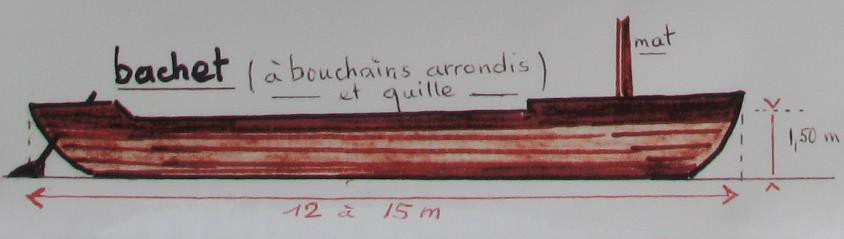 bachet (à bouchains arrondis)
et quille
mat
1,50 m
12 à 15 m